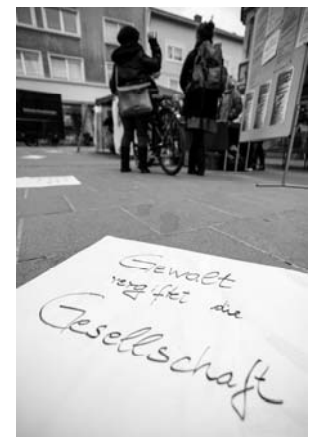 Gewalt
vergiftet die
Gesellschaft